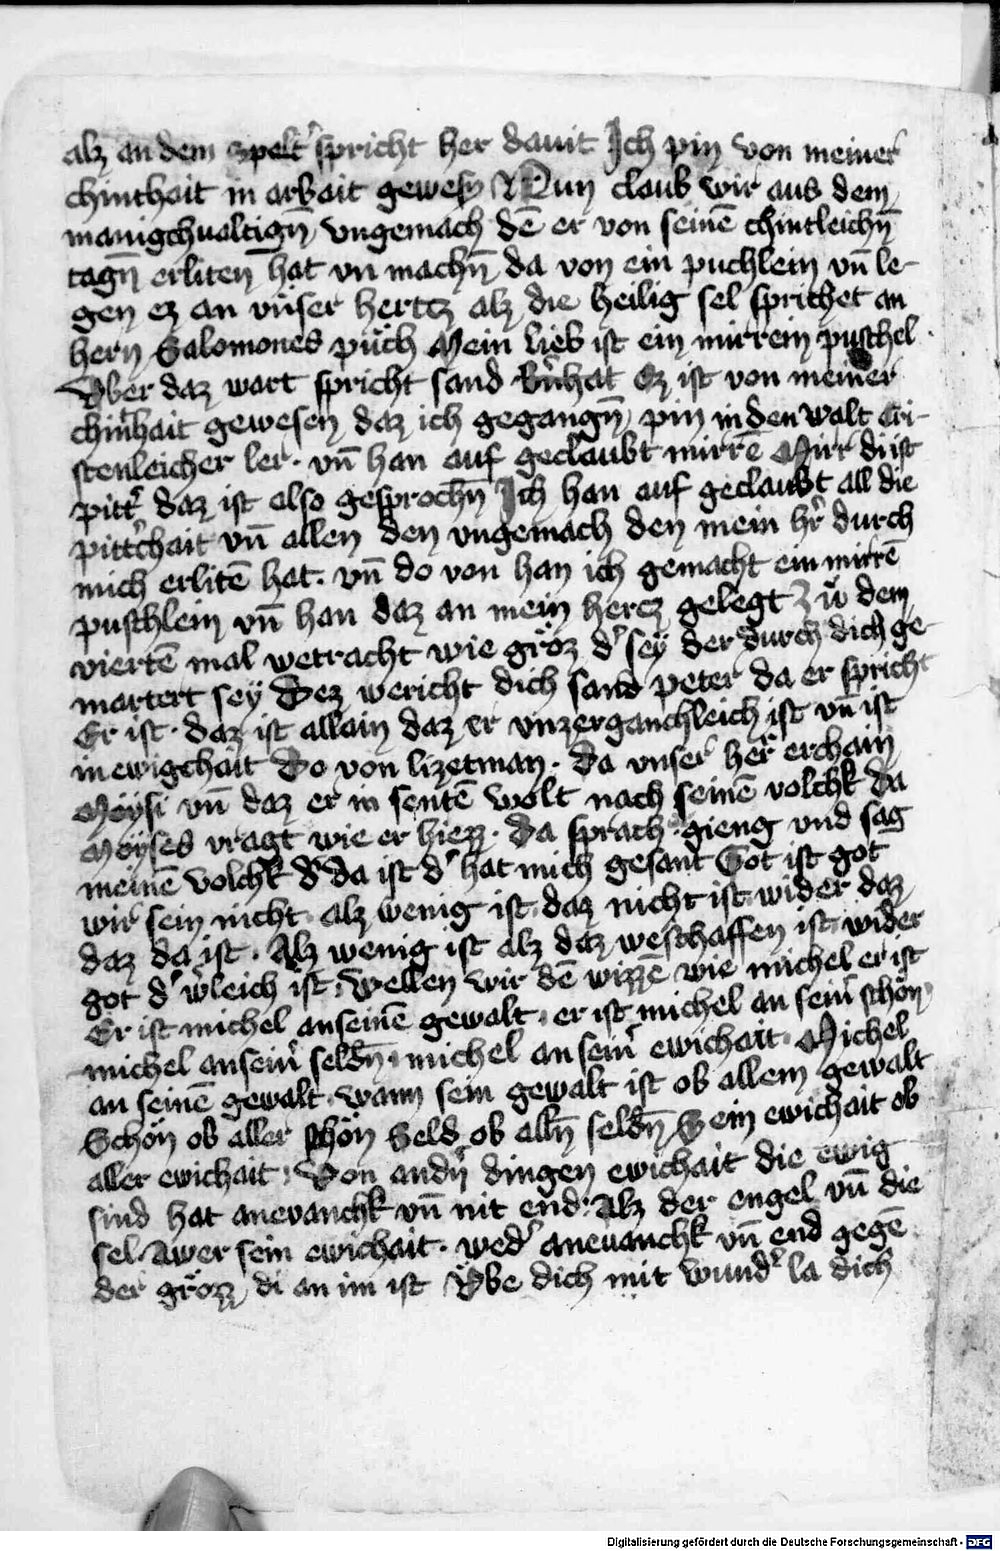 alz an dem spelt͛ spricht her dauit Ich pin von meiner͛
chinthait in arbait gewesn̄ Nun claub wir aus dem
manigchualtign̄ vngemach dē er von seinē chintleichn̄
tagn̄ erliten hat vn̄ machn̄ da von ein puchlein vn̄ le-
gen ez an vnser hertcz alz die heilig sel sprichet an
hern Salomones půch Mein lieb ist ein mirrein puschel ·
Vber daz wart spricht sand Ez ist von meiner
chinthait gewesen daz ich gegangn̄ pin in den walt cri-
stenleicher ler · vn̄ han auf geclaubt mirrē Mirr di ist
pitt͛ daz ist also gesprochn̄ Ich han auf geclaubt all die
pitt͛chait vn̄ allen den vngemach den mein hr͛ durch
mich erlitē hat · vn̄ do von han ich gemacht ein mirrē
puschlein vn̄ han daz an mein hercz gelegt Zů dem
viertē mal wetracht wie gröz d͛ sey der durch dich ge-
martert sey Dez wericht dich sand peter da er spricht
Er ist · daz ist allain daz er vnzerganchleich ist vn̄ ist
in ewigchait Do von lizetman · Da vnser͛ her͛ erchain
Moysi vn̄ daz er in sentē wolt nach seinē volchk da
Moyses vragt wie er hiezz · Da sprach gieng vnd sag
meinē volchk d͛ da ist d͛ hat mich gesant Got ist got
wir sein nicht alz wenig ist daz nicht ist wider daz
daz da ist · Alz wenig ist alz daz weschaffen ist wider
got d͛ ist · Wellen wir dē wizzē wie michel er ist
Er ist michel an seinē gewalt · er ist michel an sein͛ schön
michel an sein͛ seldn̄ · michel an sein͛ ewichait · Michel
an seinē gewalt · wann sein gewalt ist ob allem gewalt
Schön ob aller schön Seld ob alln̄ seldn̄ Sein ewichait ob
aller ewichait · Von andn̄͛ dingen ewichait die ewig
sind hat anevanchk vn̄ nit end · Alz der engel vn̄ die
sel Awer sein ewichait · wed͛ aneuanchk vn̄ end gegē
der grözz di an im ist Vbe dich mit wund͛ la dich
Digitalisierung gefördert durch die Deutsche Forschungsgemeinschaft - DFG